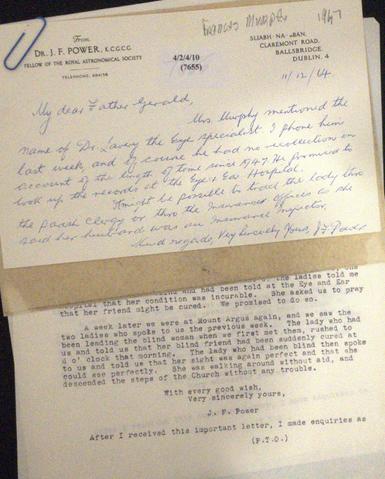 Frances Murphy 1947
From
DR. J. F. POWER, K.C.G.C.
FELLOW OF THE ROYAL ASTRONOMICAL SOCIETY
TELEPHONE
4/2/4/10
(7655)
SLIABH NA mBAN,
CLAREMONT ROAD,
BALLSBRIDGE,
DUBLIN, 4
11/12/64.
My dear Father Gerald,
Mrs. Murphy mentioned the
name of Dr. Lavery the Eye specialist. I phone him
last week, and of course he had no recollection on
account of the length of time since 1947. He promised to
look up the records at the Eye & Ear Hospital.
It might be possible to trace the lady thro
the Parish Clergy or thro the Insurance offices as she
said her husband was an Insurance inspector.
Kind regards, Very sincerely Yours, J.F. Power
the ladies told me
who had been told at the Eye and Ear
that her condition was incurable. She asked us to pray
that her friend might be cured. We promised to do so.
A week later we were at Mount Argus again, and we saw the
two ladies who spoke to us the previous week. The lady who had
been leading the blind woman when we first met them, rushed to
us and told us that her blind friend had been suddenly cured at
o' clock that morning. The lady who had been blind then spoke
to us and told us that her sight was again perfect and that she
could see perfectly. She was walking around without aid, and
descended the steps of the Church without any trouble.
With every good wish,
Very sincerely yours,
J. F. Power
After I received this important letter, I made enquiries as
(P.T.O.)